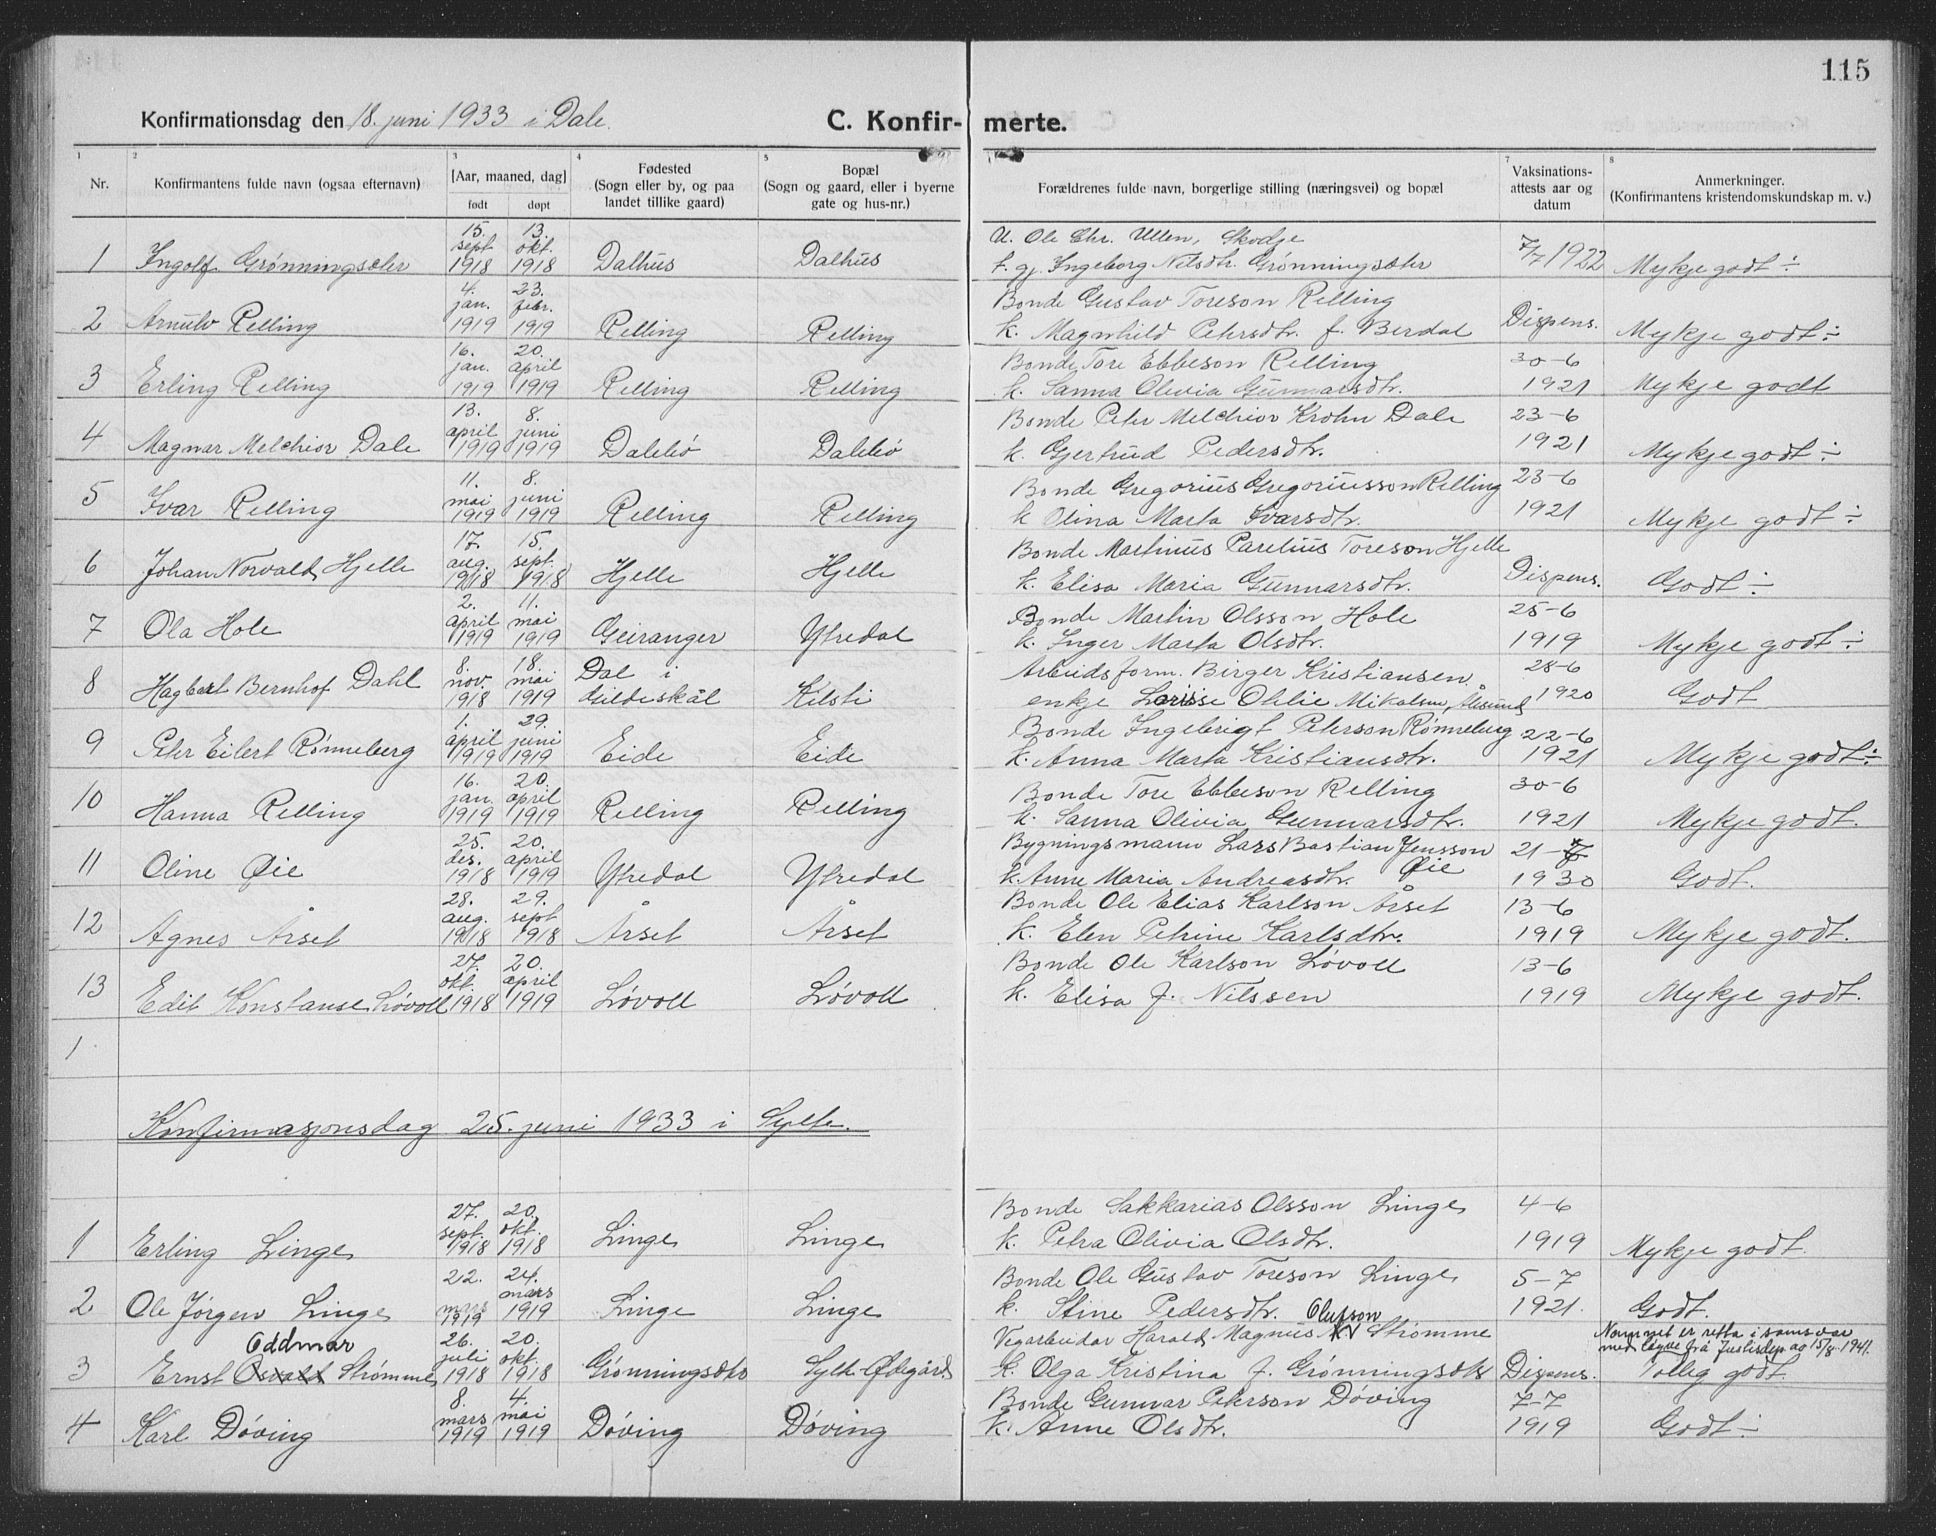 115
Konfirmationsdag den 18. juni 1933 i Dale. C. Konfir- merte.
1 2 3 4 5 7 8
Nr. Konfirmantens fulde navn (ogsaa efternavn) [Aar, maaned, dag] født døpt Fødested (Sogn eller by, og paa landet tillike gaard) Bopæl (Sogn og gaard, eller i byerne gate og hus-nr.) Forældrenes fulde navn, borgerlige stilling (næringsvei) og bopæl Vaksinations-attests aar og datum Anmerkninger. (Konfirmantens kristendomskundskap m. v.)
1 Ingolf Grønningsæter 15. sept 1918 13. okt. 1918 Dalhus Dalhus U. Ole Chr. Ullen, Skodje
t. gj. Ingeborg Nilsdtr. Grønningsæter 7/7 1922 Mykje godt ÷
2 Arnulv Relling 4. jan. 1919 23. febr. 1919 Relling Relling Bonde Gustav Toreson Relling
k. Magnhild Petersdtr. f. Berdal Dispens. Mykje godt ÷
3 Erling Relling 16. jan. 1919 20. april 1919 Relling Relling Bonde Tore Ebbeson Relling
k. Sanna Olivia Gunnarsdtr. 30-6 1921 Mykje godt
4 Magnar Melchior Dale 13. april 1919 8. juni 1919 Dalebø Dalebø Bonde Peter Melchior Krohn Dale
k. Gjertrud Pedersdtr. 23-6 1921 Mykje godt ÷
5 Ivar Relling 11. mai 1919 8. juni 1919 Relling Relling Bonde Gregorius Gregoriusson Relling
k Olina Marta Ivarsdtr. 23-6 1921 Mykje godt ÷
6 Johan Norvald Hjelle 17. aug. 1918 15. sept. 1918 Hjelle Hjelle Bonde Martinus Parelius Toreson Hjelle
k. Elisa Maria Gunnarsdtr. Dispens. Godt ÷
7 Ola Hole 2. april 1919 11. mai 1919 Geiranger Ytredal Bonde Martin Olsson Hole
k. Inger Marta Olsdtr. 25-6 1919 Mykje godt ÷
8 Hagbart Bernhof Dahl 8. nov. 1918 18. mai 1919 Dal i Gildeskål Kilsti Arbeidsform. Birger Kristiansen
enkje Lovise Otelie Mikalsen, Ålesund 28-6 1920 Godt
9 Peter Eilert Rønneberg 1. april 1919 29. juni 1919 Eide Eide Bonde Ingebrigt Peterson Rønneberg
k. Anna Marta Kristiansdtr. 22-6 1921 Mykje godt ÷
10 Hanna Relling 16. jan. 1919 20. april 1919 Relling Relling Bonde Tore Ebbeson Relling
k. Sanna Olivia Gunnarsdtr. 30-6 1921 Mykje godt.
11 Oline Øie 25. des. 1918 20. april 1919 Ytredal Ytredal Bygningsmann Lars Bastian Jensson Øie
k. Anne Maria Andreasdtr. 21-7 1930 Godt.
12 Agnes Årset 28. aug. 1918 29. sept 1918 Årset Årset Bonde Ole Elias Karlson Årset
k. Elen Petrine Karlsdtr. 13-6 1919 Mykje godt.
13 Edit Konstanse Løvoll 27. okt. 1918 20. april 1919 Løvoll Løvoll Bonde Ole Karlson Løvoll
k. Elisa f. Nilssen 13-6 1919 Mykje godt.
1
Konfirmasjonsdag 25. juni 1933 i Sylte.
1 Erling Linge 27. sept. 1918 20. okt. 1918 Linge Linge Bonde Sakkarias Olsson Linge
k. Petra Olivia Olsdtr. 4-6 1919 Mykje godt.
2 Ole Jørgen Linge 22. mars 1919 24. mars 1919 Linge Linge Bonde Ole Gustav Toreson Linge
k. Stine Pedersdtr. 5-7 1921. Godt.
3 Ernst Osvald Oddmar Strømme 26. juli 1918 20. okt. 1918 Grønningsæter Sylte Ødegård Vegarbeidar Harald Magnus Olufson Strømme
k. Olga Kristina f. Grønningsæter Dispens. Nammet er retta i samsvar med løyve frå Justisdep. av 15/8. 1941.
Tolleg godt.
4 Karl Døving 8. mars 1919 4. mai 1919 Døving Døving Bonde Gunnar Peterson Døving
k. Anne Olsdtr. 7-7 1919 Godt ÷